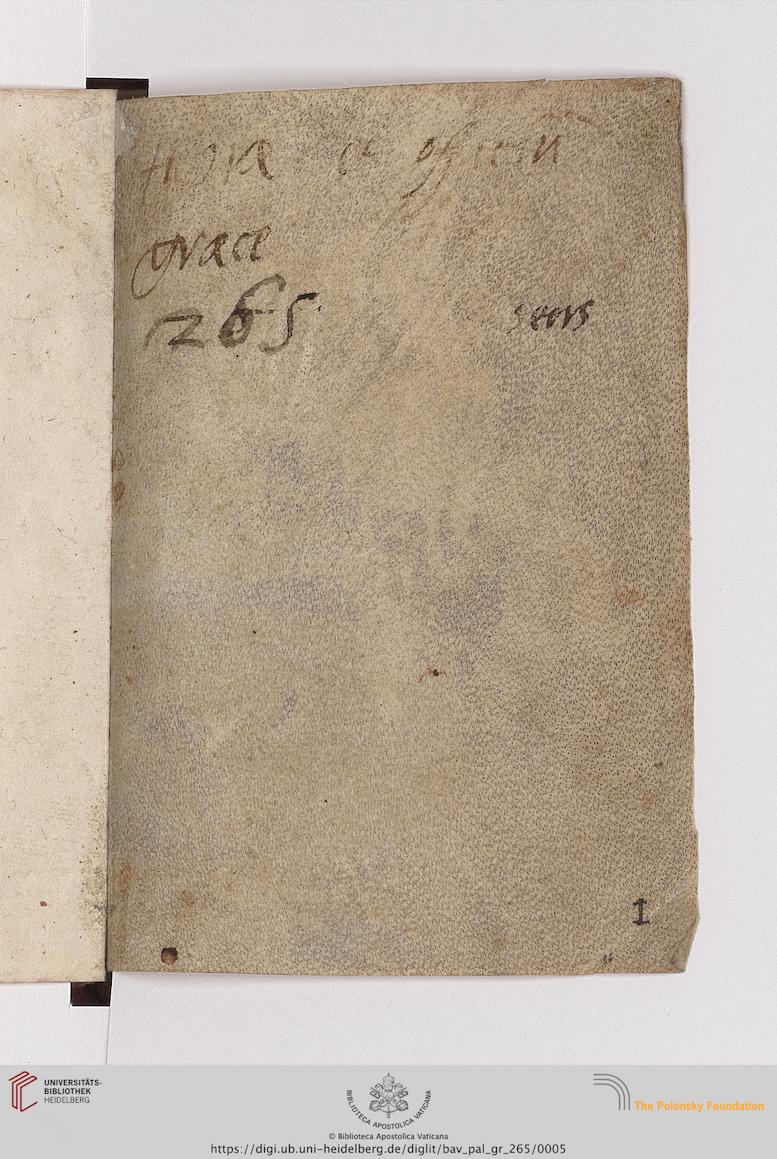 et
græce
265
1
UNIVERSITÄTS-
BIBLIOTHEK
HEIDELBERG
BIBLIOTECA APOSTOLICA VATICANA
The Polonsky Foundation
© Biblioteca Apostolica Vaticana
https://digi.ub.uni-heidelberg.de/diglit/bav_pal_gr_265/0005